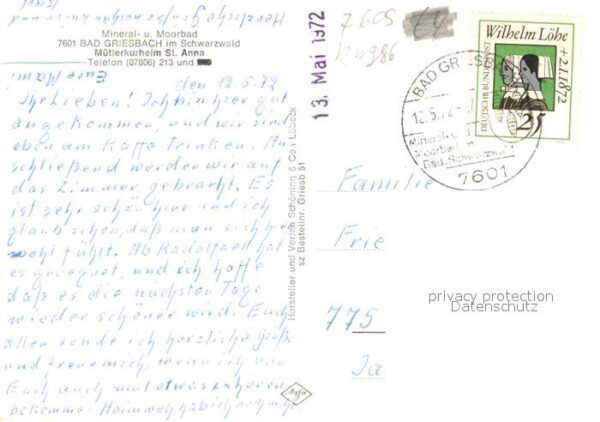 Herzliche Grüße
Mineral- u. Moorbad
7601 BAD GRIESBACH im Schwarzwald
Mütterkurheim St. Anna
Telefon (07806) 213 und
Eure Mami
den 12.5.72
Ihr Lieben! Ich bin hier gut
angekommen, und wir sind
eben am Kaffe Trinken. An-
schließend werden wir auf
das Zimmer gebracht. Es
ist sehr schön hier und ich
glaub schon, daß man sich hier
wohl fühlt. Ab Radolfzell hat
es geregnet, und ich hoffe
daß es die nächsten Tage
wieder schöner wird. Euch
allen sende ich herzliche Grüße
und freue mich, wenn ich von
Euch auch mal etwas zu hören
bekomme. Heimweh hab ich noch nicht
Hersteller und Verlag Schöning & Co., Lübeck
sz Bestellnr. Griesb 51
Agfa
13. Mai 1972
7605
Wilhelm Löhe
+ 2.1.1872
DEUTSCHE BUNDESPOST
25
12.5.72
7601
Familie
Frie
775
privacy protection
Datenschutz